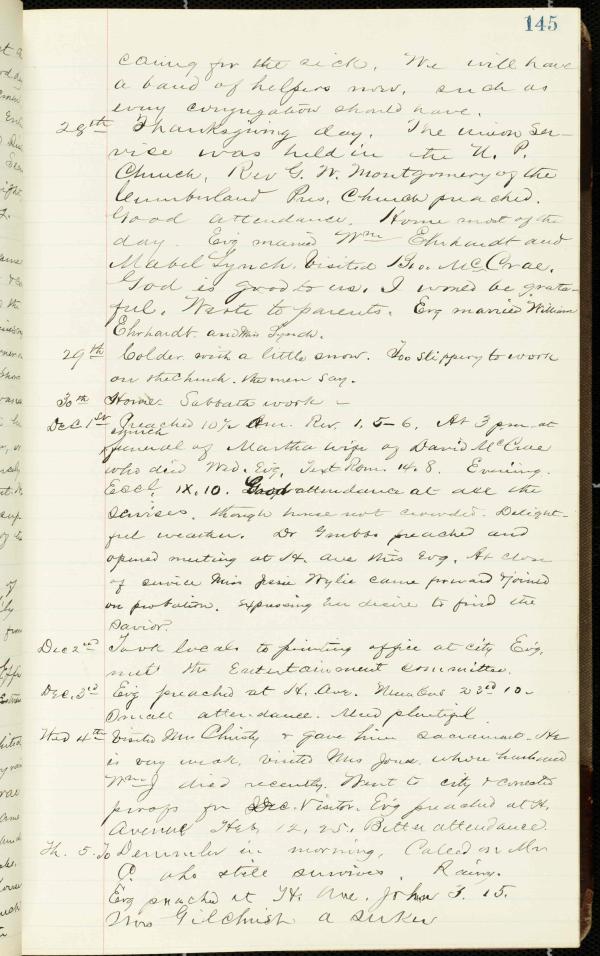 145
caring for the sick. We will have
a band of helpers now, such as
every congregation should have.
28th Thanksgiving day. The union Ser-
vice was held in the U. P.
Church, Rev G. W. Montgomery of the
Cumberland Pres. Church preached.
Good attendance. Home most of the
day. Evg married Wm Ehrhardt and
Mabel Lynch. Visited Geo. McCrae.
God is good to us. I would be grate-
ful. Wrote to parents. Evg married William
Ehrhardt and Miss Lynch.
29th Colder with a little snow. Too slippery to work
on the Church. the men say.
30th Home. Sabbath work -
Dec. 1st Preached 10½ Am. Rev. 1, 5-6. At 3 pm. at
church
funeral of Martha wife of David McCrae
who died Wed. Evg. Text Rom. 14. 8. Evening.
Eccl. IX. 10. Good attendance at all the
services, though house not crowded. Delight-
ful weather. Dr Grubbs preached and
opened meeting at H. Ave this Evg. At close
of service Miss Jessie Wylie came forward & joined
on probation. expressing her desire to find the
Savior.
Dec 2nd Took locals to printing office at city Evg.
met the Entertainment committee.
Dec. 3rd Evg preached at H. Ave. Numbers 23rd 10-
Small attendance. Mud plentiful
Wed 4th Visited Mr Christy & gave him sacrament. He
is very weak, visited Mrs Jones, whose husband
Wm J died recently. Went to city & corrected
proofs for Dec. Visitor. Evg preached at H.
Avenue Heb. 12, 25. Better attendance.
Th. 5. To in morning, Called on Mr
C. who still survives. Rainy.
Evg preached at H. Ave. John 3. 15.
Mrs Gilchrist a seeker